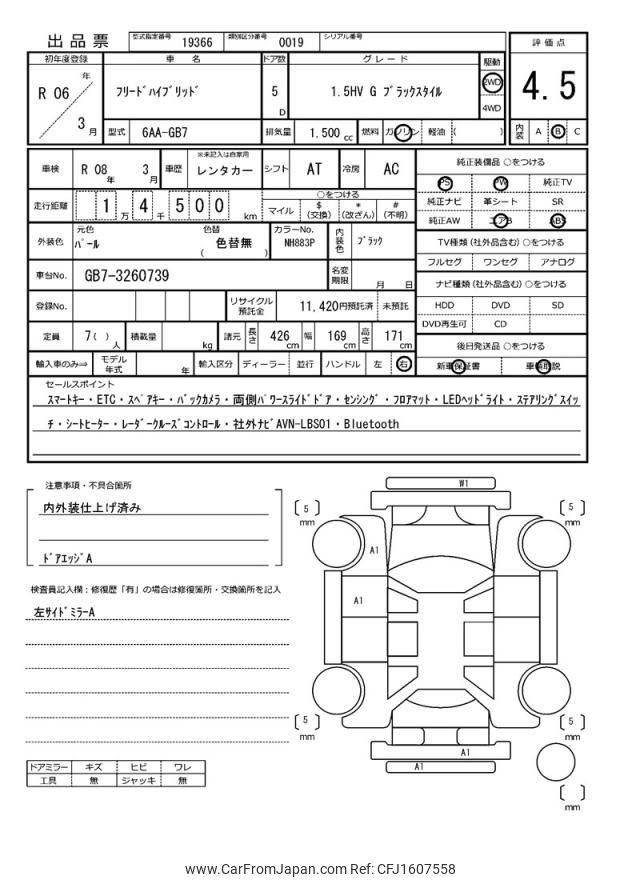 出品票 型式指定番号 19366 類別区分番号 0019 シリアル番号
初年度登録 車 名 ドア数 グレード 駆動 評価点
R 06 年 3 月 フリードハイブリッド 5 D 1.5HV G ブラックスタイル 2WD 4WD 4.5
型式 6AA-GB7 排気量 1.500 cc 燃料 ガソリン 軽油 ( ) 内装 A B C
車検 R 08 年 3 月 車歴 ※未記入は自家用 レンタカー シフト AT 冷房 AC
走行距離 1 万 4 千 5 0 0 km ○をつける マイル $ (交換) * (改ざん) # (不明)
外装色 元色 パール 色替 色替無 ( ) カラーNo. NH883P 内装色 ブラック
車台No. GB7-3260739 名変期限 月 日
登録No. リサイクル預託金 11,420円預託済 未預託
定員 7( ) 人 積載量 kg 諸元 長さ 426 cm 幅 169 cm 高さ 171 cm
輸入車のみ⇒ モデル年式 年 輸入区分 ディーラー 並行 ハンドル 左 右
純正装備品 ○をつける
PS PW 純正TV
純正ナビ 革シート SR
純正AW エアB ABS
TV種類(社外品含む)○をつける
フルセグ ワンセグ アナログ
ナビ種類(社外品含む)○をつける
HDD DVD SD
DVD再生可 CD
後日発送品 ○をつける
新車保証書 車輌取説
セールスポイント
スマートキー・ETC・スペアキー・バックカメラ・両側パワースライドドア・センシング・フロアマット・LEDヘッドライト・ステアリングスイッ
チ・シートヒーター・レーダークルーズコントロール・社外ナビAVN-LBS01・Bluetooth
注意事項・不具合箇所
内外装仕上げ済み
ドアエッジA
検査員記入欄：修復歴「有」の場合は修復箇所・交換箇所を記入
左サイドミラーA
ドアミラー キズ ヒビ ワレ
工具 無 ジャッキ 無
W1
[ 5 ] mm
[ 5 ] mm
A1
A1
[ 5 ] mm
[ 5 ] mm
A1
A1
[ ] mm
www.CarFromJapan.com Ref: CFJ1607558